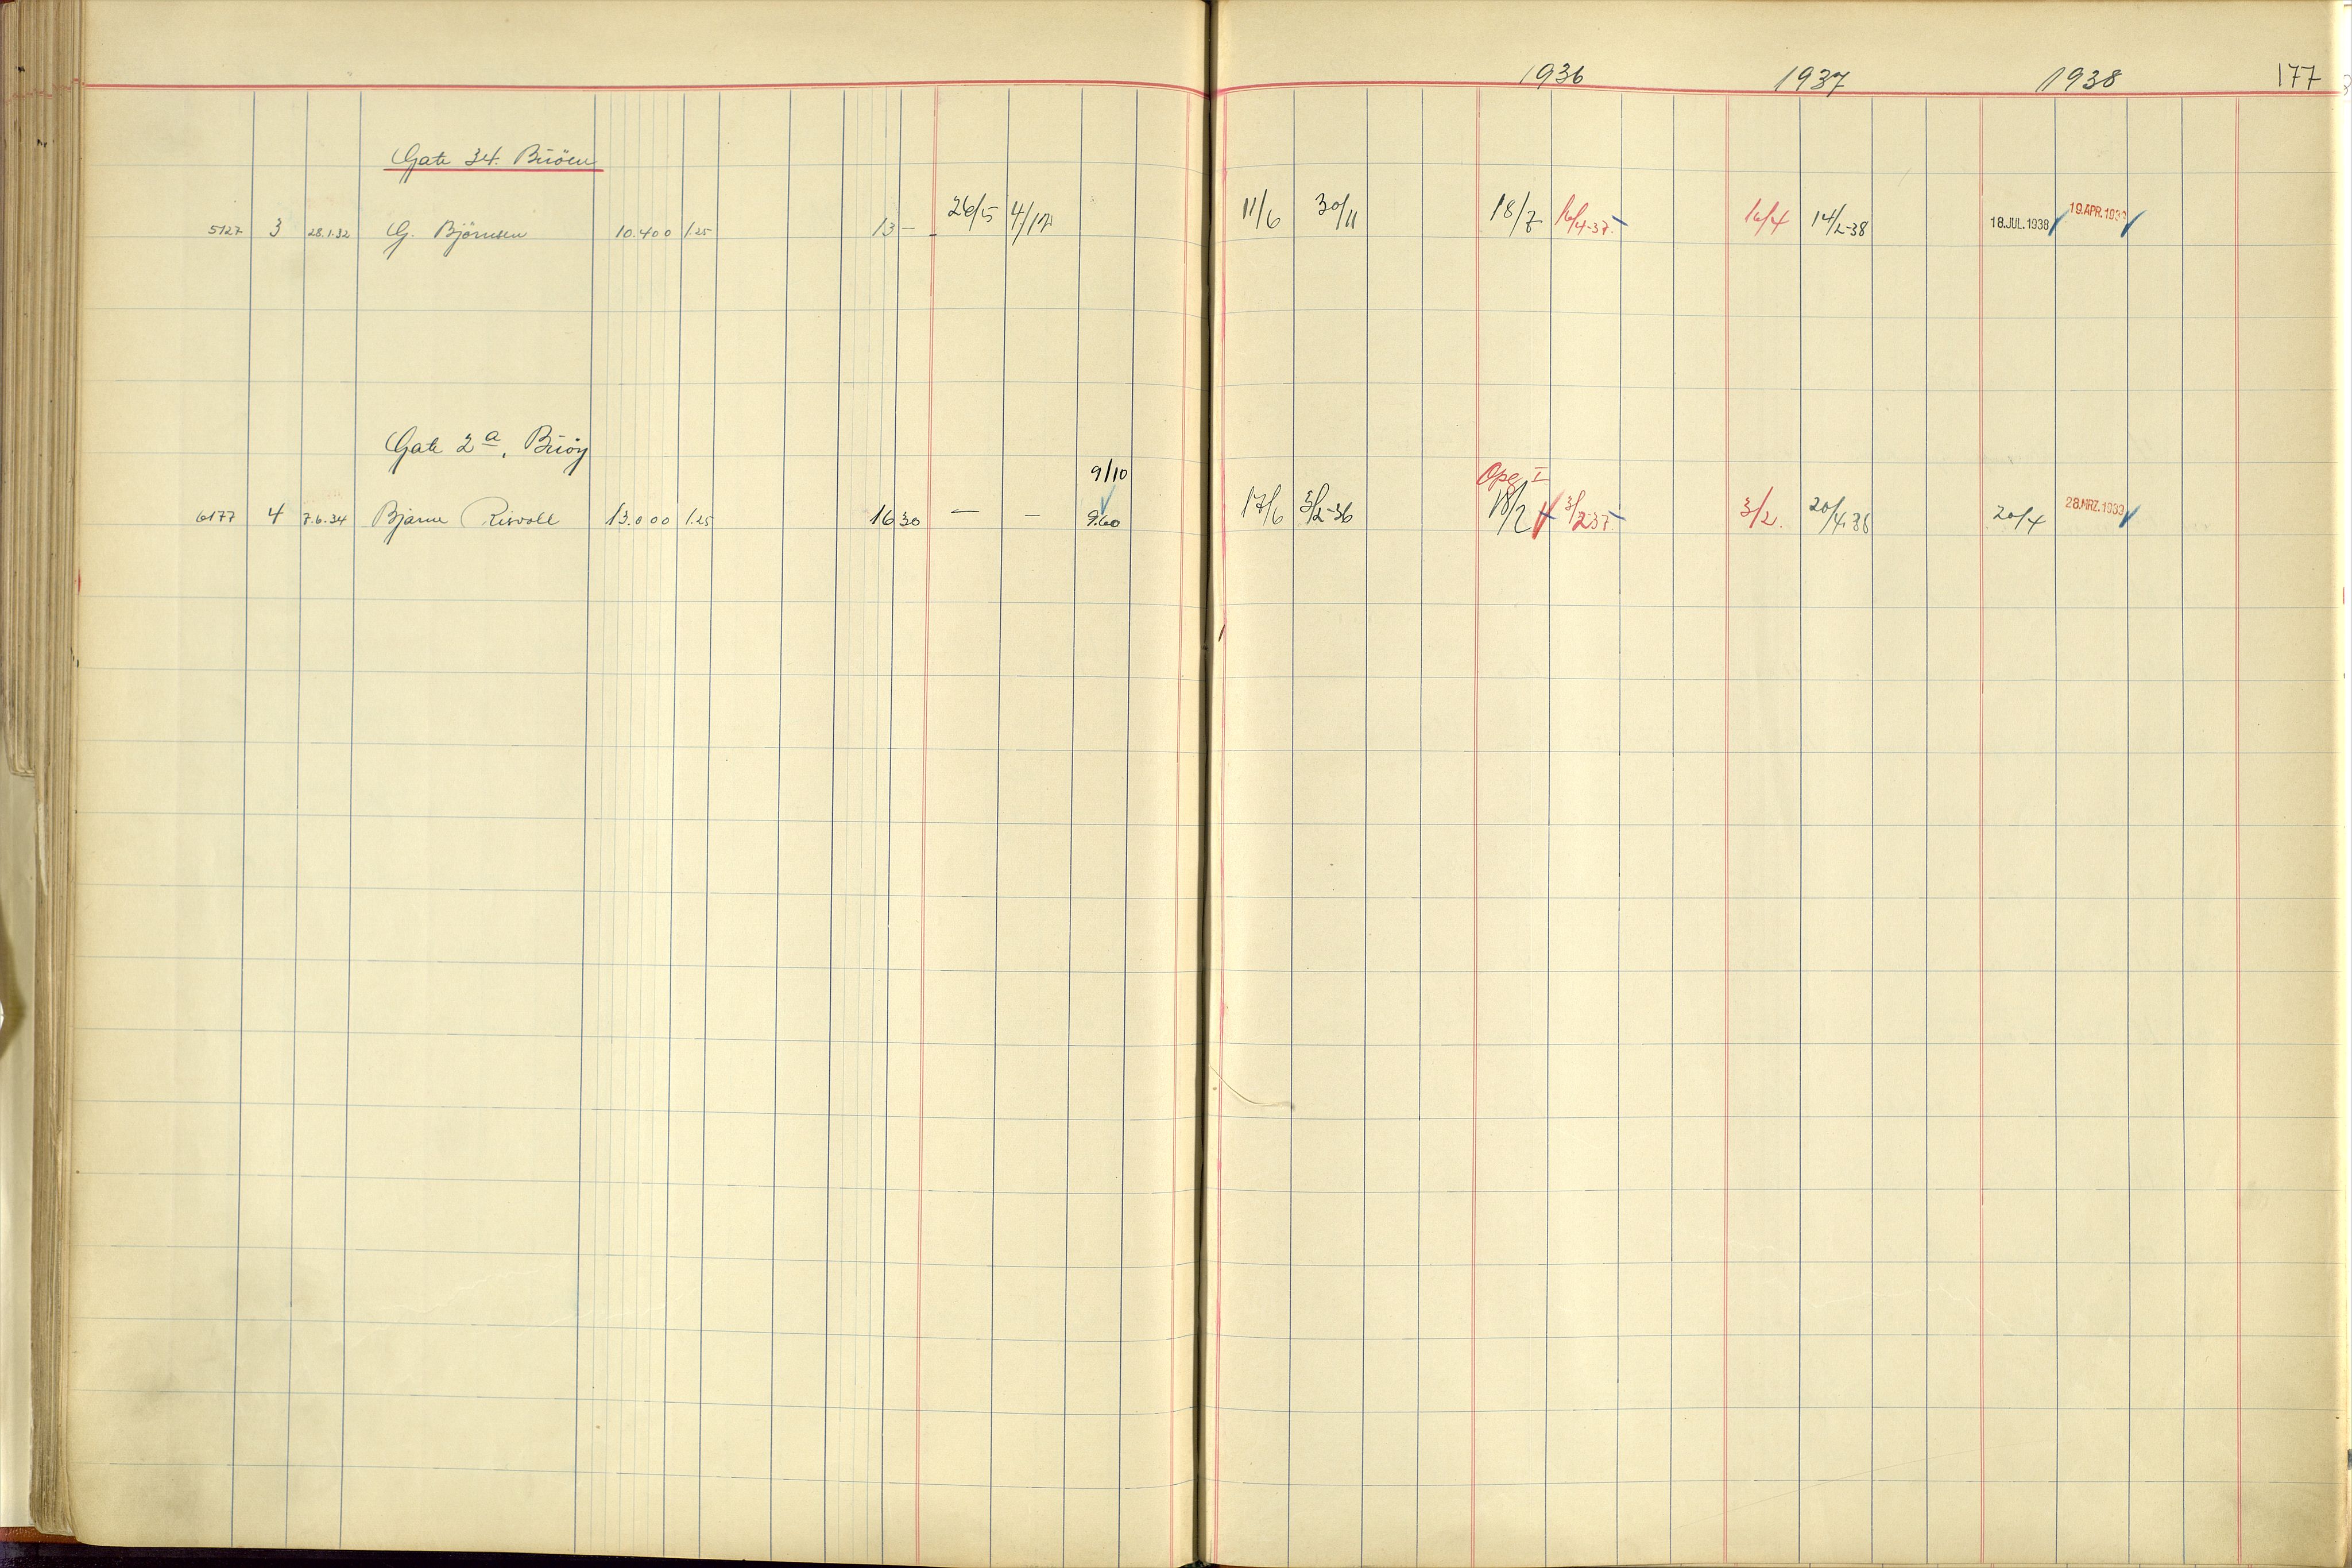 1936 1937 1938 177
Gate 34. Buöen
5127 3 28.1.32 G. Björnsen 10.400 1.25 13 — 26/5 4/12 11/6 30/11 18/7 16/4-37. 16/4 14/2-38 18.JUL.1938 19.APR.1939
Gate 2a, Buöy
9/10 Opg I
6177 4 7.6.34 Bjarne Risvoll 13.000 1.25 16 30 — — 9.60 17/6 3/2-36 18/2 3/2-37. 3/2. 20/4.38 20/4 28.MRZ.1939